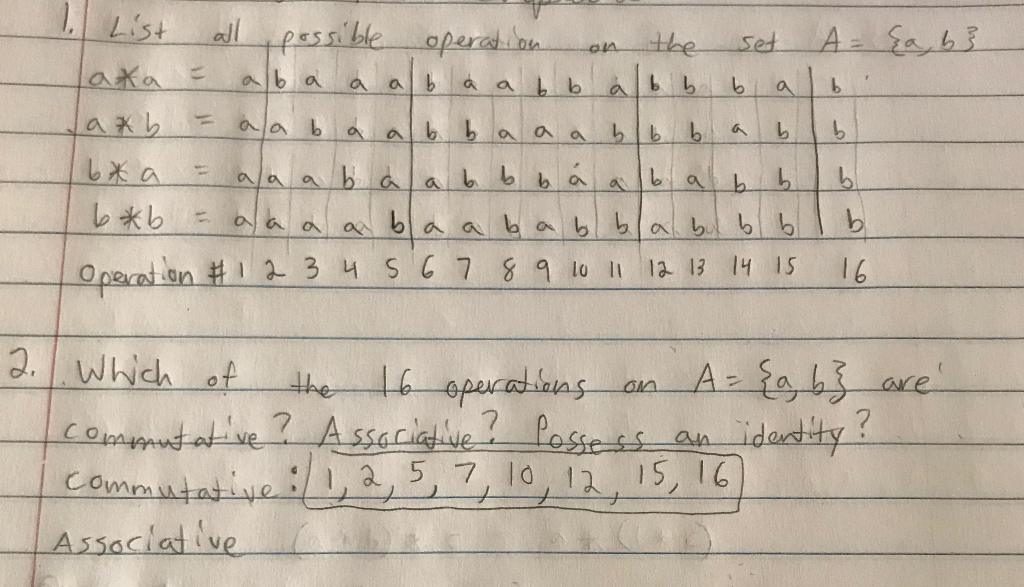 1. List all possible operation on the set A = {a, b}
a*a = a b a a a b a a b b a b b b a b
a*b = a a b a a b b a a a b b b a b b
b*a = a a a b a a b b b a a b a b b b
b*b = a a a a b a a b a b b a b b b b
Operation # 1 2 3 4 5 6 7 8 9 10 11 12 13 14 15 16
2. Which of the 16 operations on A = {a, b} are
commutative? Associative? Possess an identity?
commutative: 1, 2, 5, 7, 10, 12, 15, 16
Associative